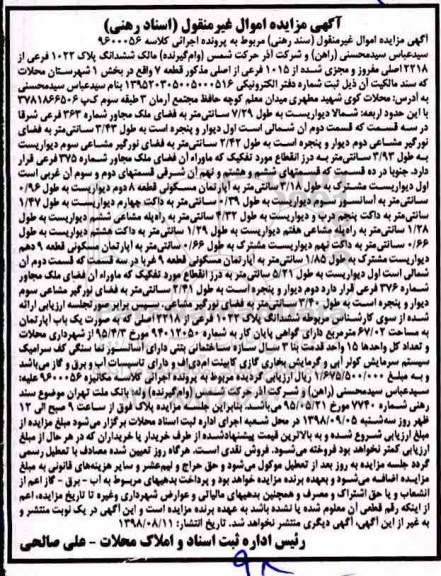 آگهی مزایده اموال غیرمنقول (اسناد رهنی)
آگهی مزایده اموال غیرمنقول (سند رهنی) مربوط به پرونده اجرائی کلاسه ۹۶۰۰۰۵۶
سیدعباس سیدمحسنی (راهن) و شرکت آذر حرکت شمس (وام‌گیرنده) مالک ششدانگ پلاک ۱۰۲۲ فرعی از
۲۲۱۸ اصلی مفروز و مجزی شده از ۱۰۱۵ فرعی از اصلی مذکور قطعه ۷ واقع در بخش ۱ شهرستان محلات
که سند مالکیت آن ذیل ثبت شماره دفتر الکترونیکی ۱۳۹۵۲۰۳۰۵۰۰۵۰۰۰۵۱۶ بنام سیدعباس سیدمحسنی
به آدرس: محلات کوی شهید مطهری میدان معلم کوچه حافظ مجتمع آرمان ۳ طبقه سوم کدپ ۳۷۸۱۸۶۶۵۰۶
با این حدود اربعه: شمالا دیواریست به طول ۷/۲۹ سانتی‌متر به فضای ملک مجاور شماره ۳۶۳ فرعی شرقا
در سه قسمت که قسمت دوم آن شمالی است اول دیوار و پنجره است به طول ۳/۴۳ سانتی‌متر به فضای
نورگیر مشاعی دوم دیوار و پنجره است به طول ۲/۴۲ سانتی‌متر به فضای نورگیر مشاعی سوم دیواریست
به طول ۳/۹۳ سانتی‌متر به درز انقطاع مورد تفکیک که ماوراء آن فضای ملک مجاور شماره ۳۷۵ فرعی قرار
دارد. جنوبا در ده قسمت که قسمتهای چهارم و هشتم و نهم آن شرقی قسمتهای دوم و سوم آن غربی است
اول دیواریست مشترک به طول ۳/۱۸ سانتی‌متر به آپارتمان مسکونی قطعه ۸ دوم دیواریست به طول ۰/۹۶
سانتی‌متر به آسانسور سوم دیواریست به طول ۰/۳۹ سانتی‌متر به داکت چهارم دیواریست به طول ۱/۴۷
سانتی‌متر به داکت پنجم درب و دیواریست به طول ۴/۳۲ سانتی‌متر به راه‌پله مشاعی ششم دیواریست به طول
۱/۲۸ سانتی‌متر به راه‌پله مشاعی هفتم دیواریست به طول ۱/۲۹ سانتی‌متر به داکت هشتم دیواریست به طول
۰/۶۶ سانتی‌متر به داکت نهم دیواریست مشترک به طول ۰/۶۶ سانتی‌متر به آپارتمان مسکونی قطعه ۹ دهم
دیواریست مشترک به طول ۱/۸۵ سانتی‌متر به آپارتمان مسکونی قطعه ۹ غربا در سه قسمت که قسمت دوم آن
شمالی است اول دیواریست به طول ۵/۲۱ سانتی‌متر به درز انقطاع مورد تفکیک که ماوراء آن فضای ملک مجاور
شماره ۳۷۶ فرعی قرار دارد دوم دیوار و پنجره است به طول ۲/۴۱ سانتی‌متر به فضای نورگیر مشاعی سوم
دیوار و پنجره است به طول ۳/۴۰ سانتی‌متر به فضای نورگیر مشاعی. سپس برابر صورتجلسه ارزیابی ارائه
شده از سوی کارشناس مربوطه ششدانگ پلاک ۱۰۲۲ فرعی از ۲۲۱۸ اصلی که به صورت یک باب آپارتمان
به مساحت ۶۷/۰۲ مترمربع دارای گواهی پایان کار به شماره ۹۴۰۱۲۰۵۰ مورخ ۹۵/۴/۳ از شهرداری محلات
و تعداد کل واحدها ۱۵ واحد قدمت بنا ۳ سال سازه ساختمانی بتنی دارای آسانسور نما سنگی کف سرامیک
سیستم سرمایش کولر آبی و گرمایش بخاری گازی کابینت ام‌دی‌اف و دارای تاسیسات آب و برق و گاز می‌باشد
و به مبلغ ۱/۶۷۵/۵۰۰/۰۰۰ ریال ارزیابی گردیده مربوط به پرونده اجرائی کلاسه مکانیزه ۹۶۰۰۰۵۶ علیه:
سیدعباس سیدمحسنی (راهن) و شرکت آذر حرکت شمس (وام‌گیرنده) له: بانک ملت تهران موضوع سند
رهنی شماره ۷۷۴۰ مورخ ۹۵/۰۵/۲۱ می‌باشد. بنابراین جلسه مزایده پلاک فوق از ساعت ۹ صبح الی ۱۲
ظهر روز سه‌شنبه ۱۳۹۸/۰۹/۰۵ در محل شعبه اجرای اداره ثبت اسناد محلات برگزار می‌شود مبلغ مزایده از
مبلغ ارزیابی شروع شده و به بالاترین قیمت پیشنهادشده از طرف خریدار یا خریداران که در هر حال از مبلغ
ارزیابی کمتر نخواهد بود فروخته می‌شود. فروش نقدی است. هرگاه روز تعیین شده مصادف با تعطیل رسمی
گردد جلسه مزایده به روز بعد از تعطیل موکول می‌شود و حق حراج و نیم‌عشر و سایر هزینه‌های قانونی به مبلغ
مزایده اضافه می‌شود و بعهده برنده مزایده خواهد بود و پرداخت بدهیهای مربوط به آب - برق - گاز اعم از
انشعاب و یا حق اشتراک و مصرف و همچنین بدهیهای مالیاتی و عوارض شهرداری وغیره تا تاریخ مزایده، اعم
از اینکه رقم قطعی آن معلوم شده یا نشده باشد به عهده برنده مزایده است و این آگهی در یک نوبت منتشر و
به غیر از این آگهی، آگهی دیگری منتشر نخواهد شد. تاریخ انتشار: ۱۳۹۸/۰۸/۱۱
رئیس اداره ثبت اسناد و املاک محلات - علی صالحی